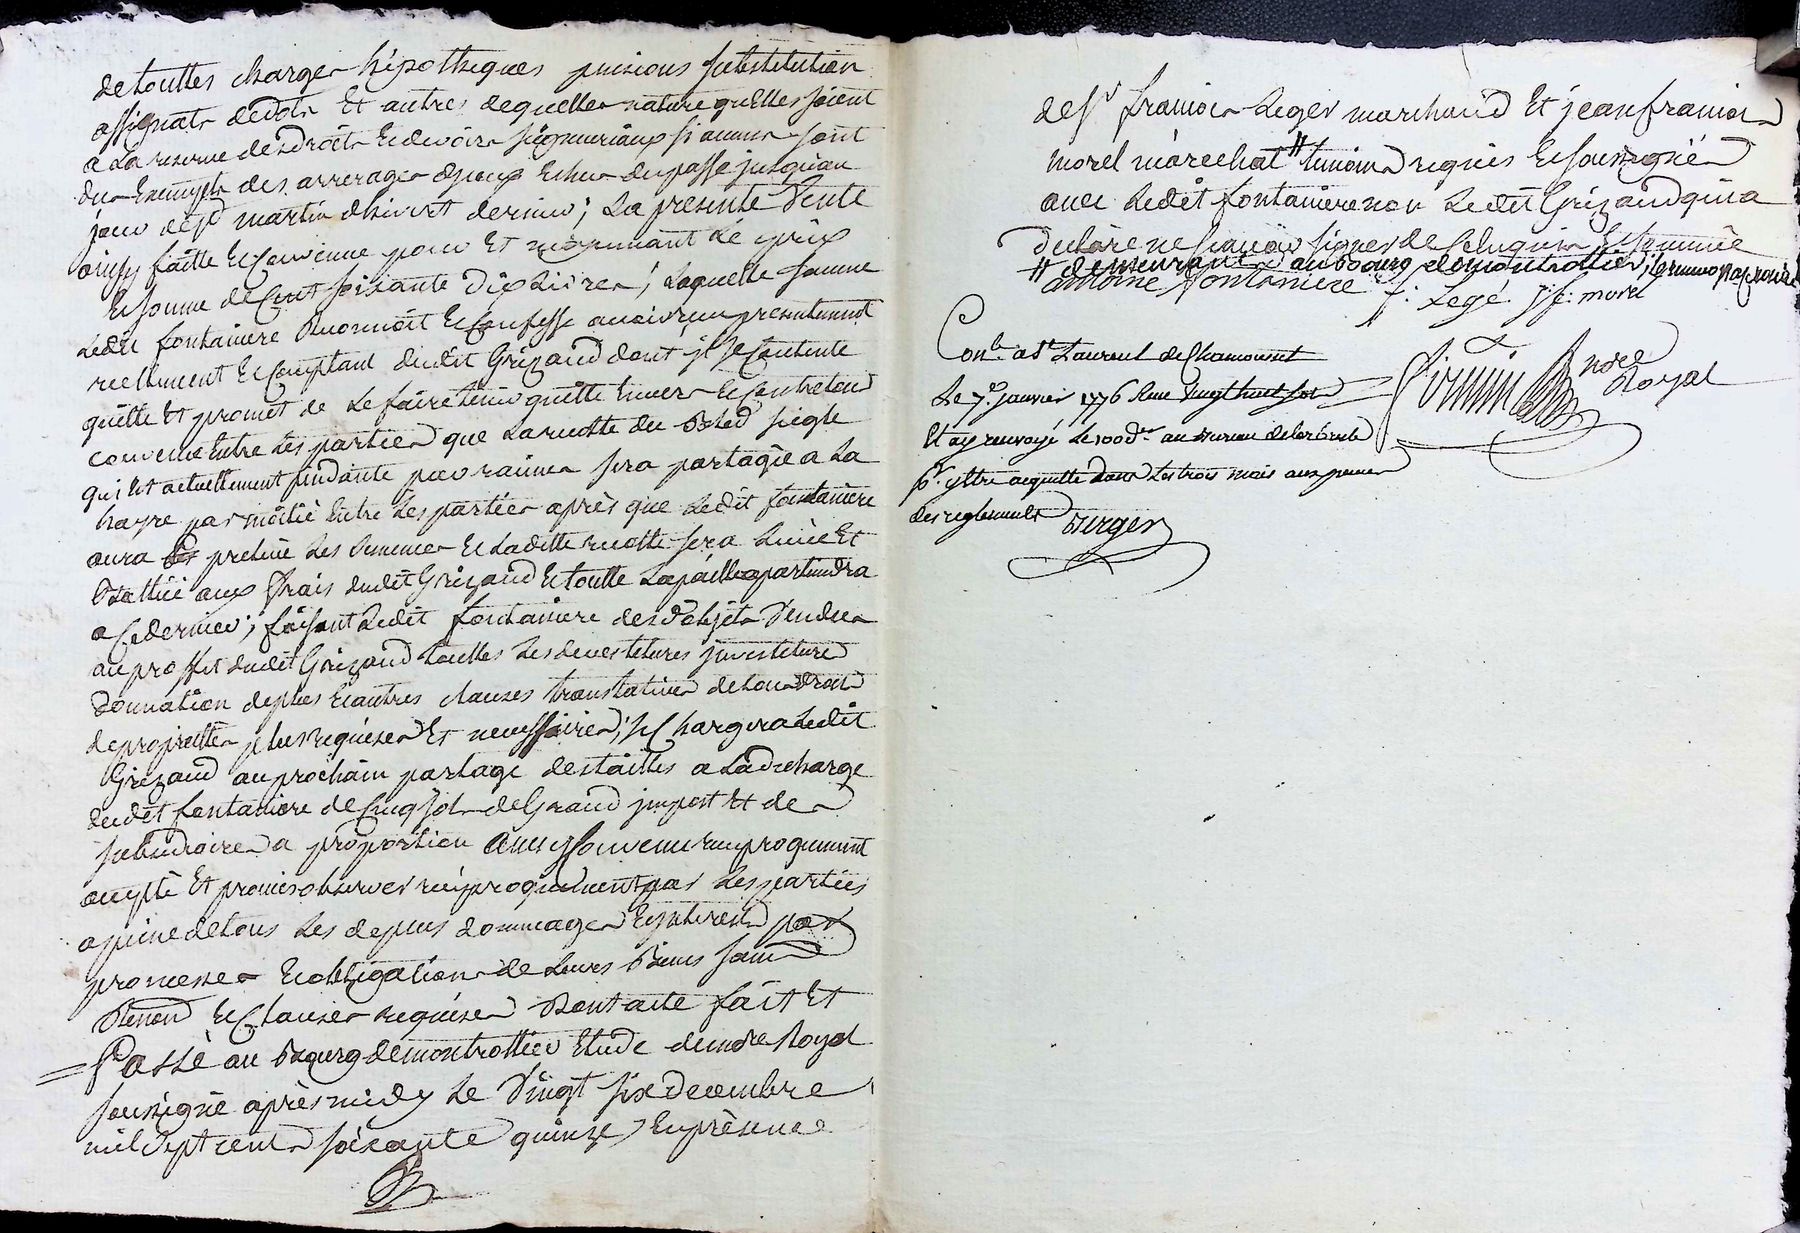 de touttes charges hipotheques pensions substitution
assignats de dots Et autres de quelles nature quElles soient
a La reserve des droits Et devoirs seigneuriaux si aucuns sont
dus Exempts des arrerages d'jceux Echus du passé jusquau
jour de st martin dhivert dernier; La presente Vente
ainsy faitte Et Convenue pour Et moyennant Le prix
Et somme de Cent soixante Dix Livres; Laquelle somme
Ledit fontaniere Reconnoit Et Confesse avoir reçu presentement
reellement Et Comptant dudit Grizaud dont jl se Contente
quitte Et promet de Le faire tenir quitte Envers Et Contre tous
convenu Entre Les parties que La recolte du Bled seigle
qui Est actuellement pendante par racines sera partagée a La
par moitié Entre Les parties après que Ledit fontaniere
aura prelevé Les semences Et Laditte recolte sera Et
Battüe aux frais dudit Grizaud Et toutte La paille apartiendra
a Ce dernier; faisant Ledit fontaniere desd objets Vendus
au proffit dudit Grizaud touttes Les devestitures jnvestitures
donnation de plus Et autres clauses translatives de tous Droits
de proprieté plus requises Et necessaires; se Chargera Ledit
Grizaud au prochain partage des tailles a La decharge
dudit fontaniere de Cinq sols de Grand jmpost Et des
subsidiaires a proportion Ainsy Convenu reciproquement
accepté Et promis observer reciproquement par Les parties
a peine de tous Les depens dommages Et jnterests par
promesses Et obligations de Leurs Biens soum
Renon Et Clauses requises Dont acte fait Et
Passé au Bourg de montrottier Etude de no.re Royal
soussigné après midy Le Vingt six Decembre
mil sept cents soixante quinze En présence
de sr françois Leger marchand Et jean françois
morel maréchal # temoins requis Et soussignés
avec Ledit fontaniere non Ledit Grizaud qui a
declaré ne sçavoir signer de Ce Enquis Et sommé
# demeurants au Bourg de montrottier; Le renvoy aprouvé
antoine fontaniere f: Legé j f: morel
Con.lé a st Laurent de Chamousset
Le 7.e janvier 1776 Reçu Vingt huit sols
Et ay renvoyé Le 100 d.er au Bureau de Larbresle
p.r y Etre acquitté dans Les trois mois aux peines
des reglements Berger
no.re Royal